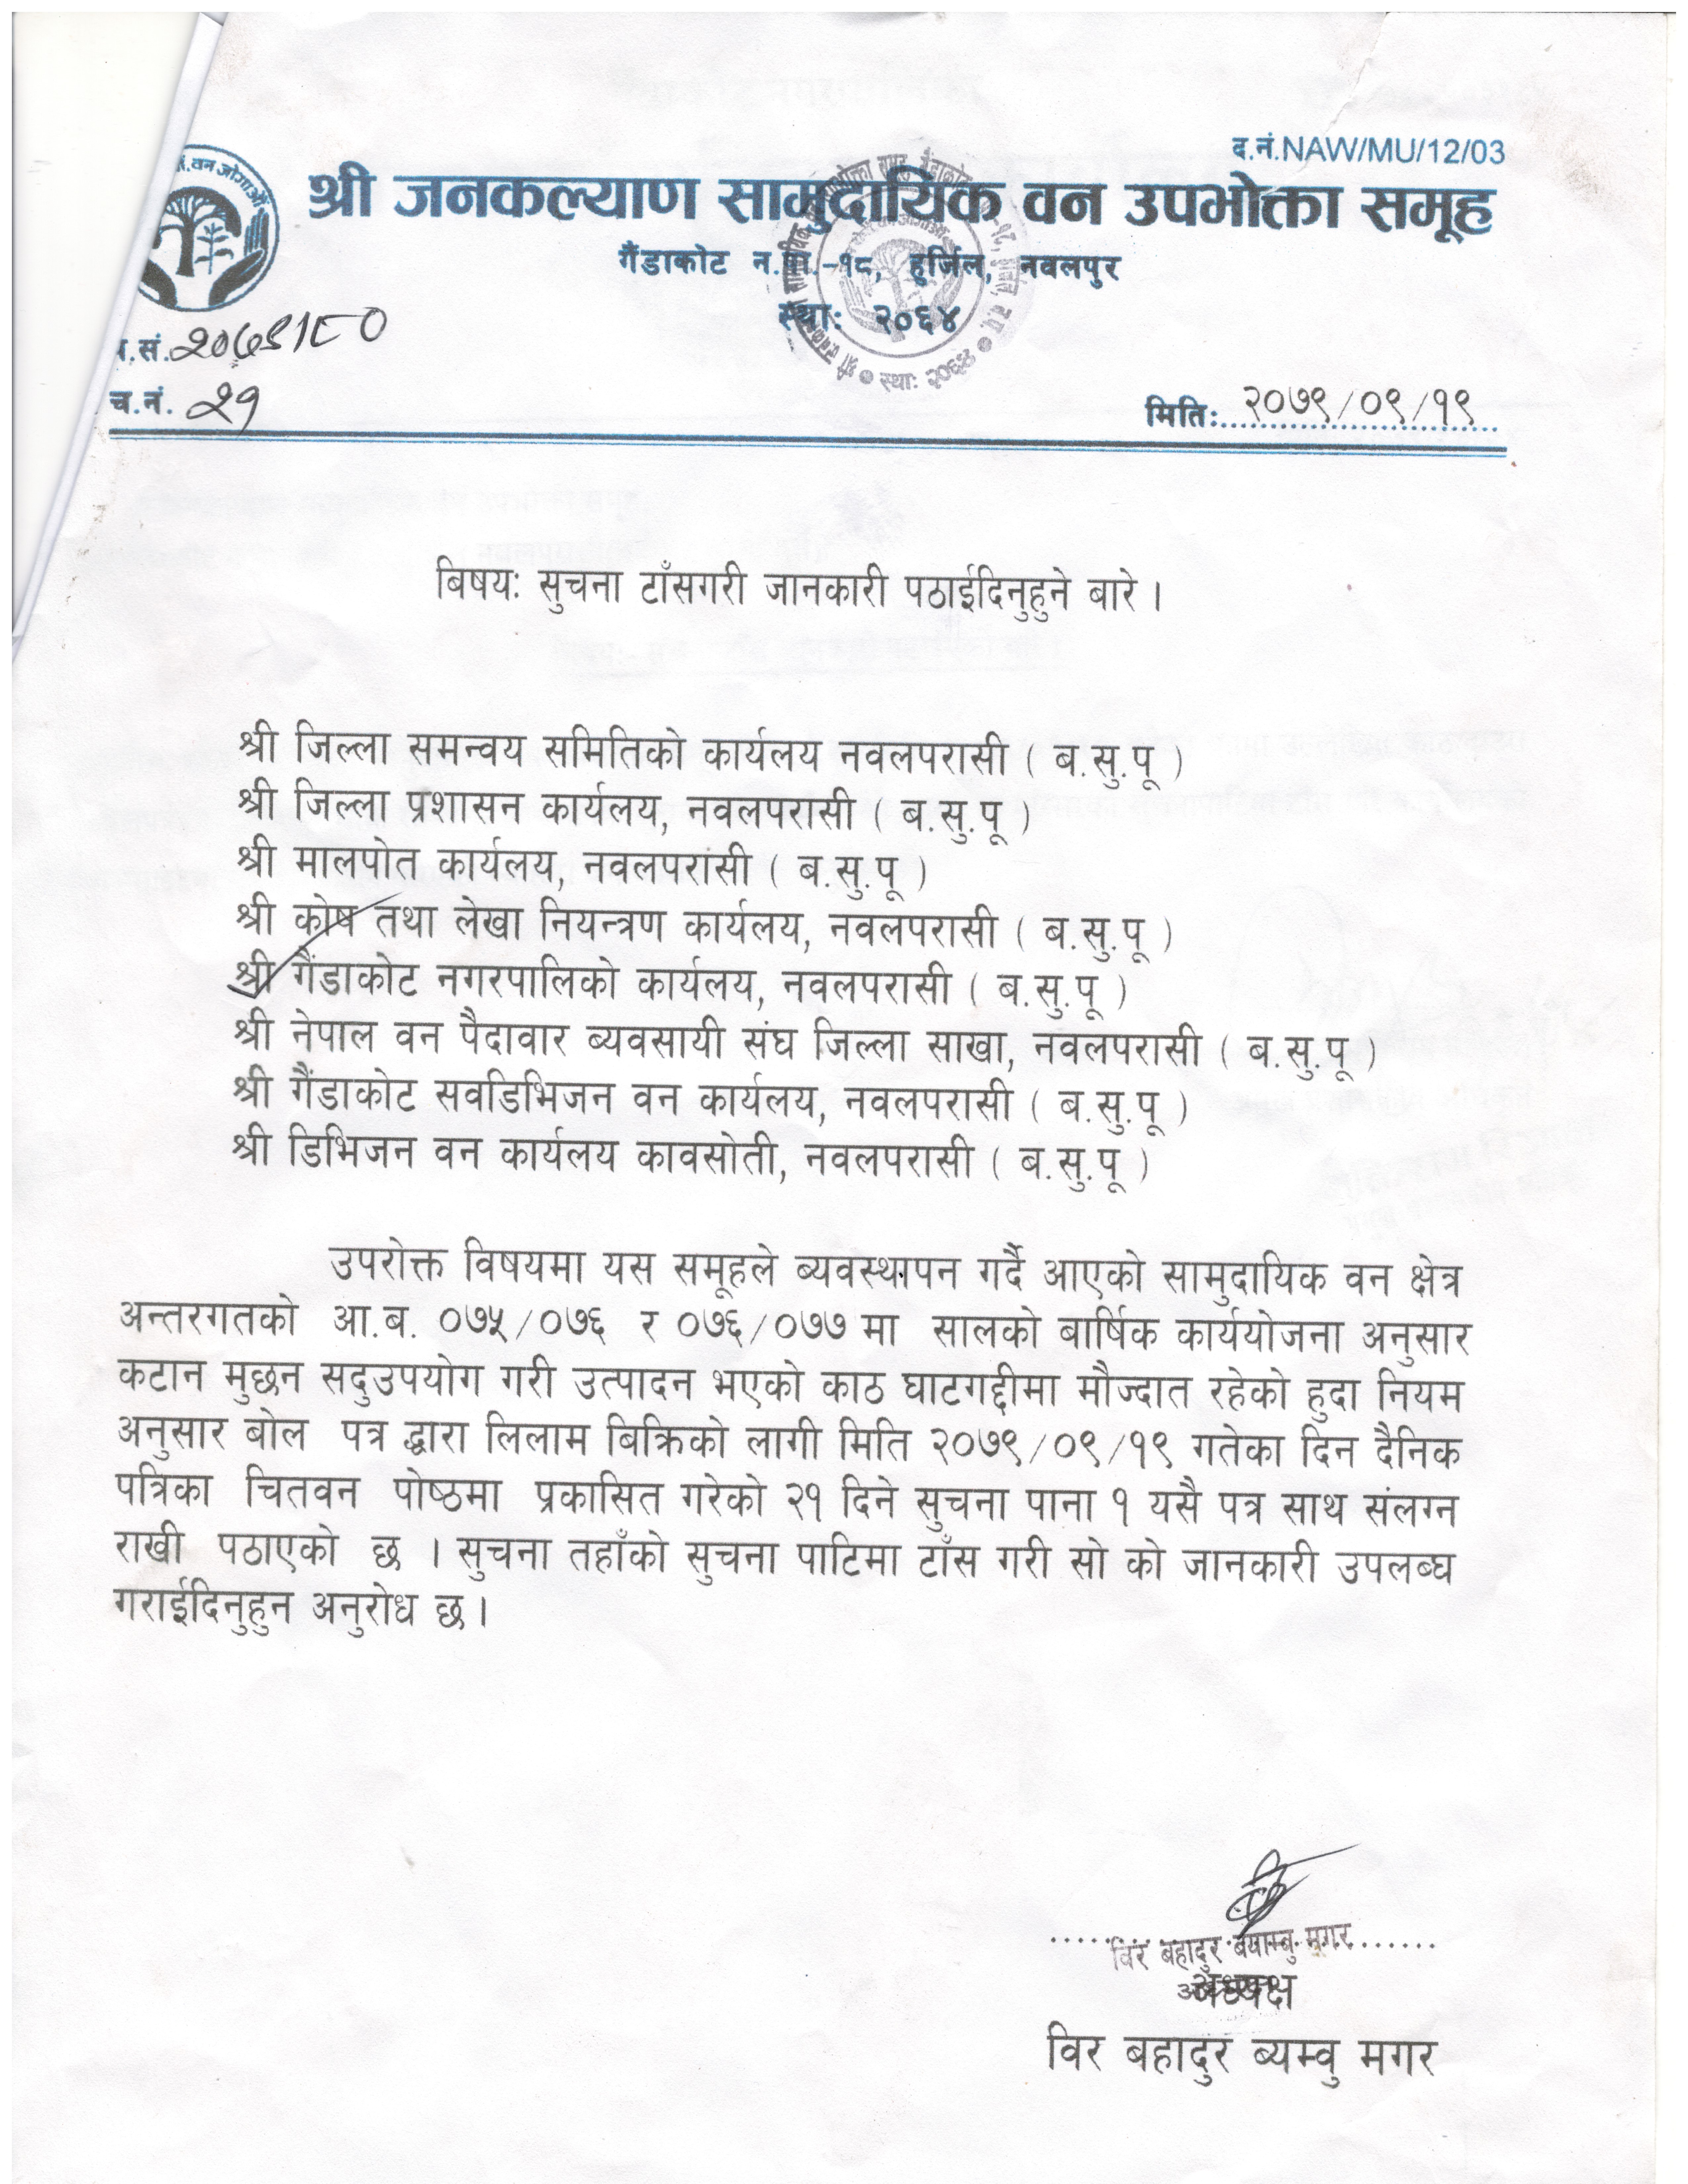 द.नं.NAW/MU/12/03
वन जोगाऔं
श्री जनकल्याण सामुदायिक वन उपभोक्ता समूह
गैंडाकोट न.पा.-१८, हुर्जिल, नवलपुर
स्थाः २०६४
.सं. २०७९।८०
च.नं. २१
मितिः २०७९/०९/१९
बिषयः सुचना टाँसगरी जानकारी पठाईदिनुहुने बारे ।
श्री जिल्ला समन्वय समितिको कार्यलय नवलपरासी ( ब.सु.पू )
श्री जिल्ला प्रशासन कार्यलय, नवलपरासी ( ब.सु.पू )
श्री मालपोत कार्यलय, नवलपरासी ( ब.सु.पू )
श्री कोष तथा लेखा नियन्त्रण कार्यलय, नवलपरासी ( ब.सु.पू )
श्री गैंडाकोट नगरपालिको कार्यलय, नवलपरासी ( ब.सु.पू )
श्री नेपाल वन पैदावार ब्यवसायी संघ जिल्ला साखा, नवलपरासी ( ब.सु.पू )
श्री गैंडाकोट सवडिभिजन वन कार्यलय, नवलपरासी ( ब.सु.पू )
श्री डिभिजन वन कार्यलय कावसोती, नवलपरासी ( ब.सु.पू )
उपरोक्त विषयमा यस समूहले ब्यवस्थापन गर्दै आएको सामुदायिक वन क्षेत्र
अन्तरगतको आ.ब. ०७५/०७६ र ०७६/०७७ मा सालको बार्षिक कार्ययोजना अनुसार
कटान मुछन सदुउपयोग गरी उत्पादन भएको काठ घाटगद्दीमा मौज्दात रहेको हुदा नियम
अनुसार बोल पत्र द्धारा लिलाम बिक्रिको लागी मिति २०७९/०९/१९ गतेका दिन दैनिक
पत्रिका चितवन पोष्ठमा प्रकासित गरेको २१ दिने सुचना पाना १ यसै पत्र साथ संलग्न
राखी पठाएको छ । सुचना तहाँको सुचना पाटिमा टाँस गरी सो को जानकारी उपलब्घ
गराईदिनुहुन अनुरोध छ ।
विर बहादुर बयाम्बु मगर
अध्यक्ष
विर बहादुर ब्यम्वु मगर